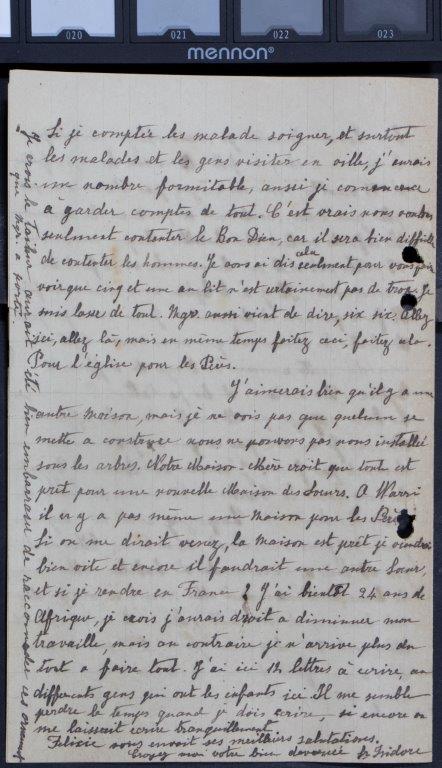 020 021 022 023
mennon®
Si je comptée les malade soigner, et surtout
les malades et les gens visiter en ville, j'aurais
une nombre formitable, aussi je commence
à garder comptes de tout. C'est vrais nous voulons
seulment contenter le Bon Dieu, car il sera bien difficile
de contenter les hommes. Je vous ai dis cela seulment pour vous faire
voir que cinq et une au lit n'est certainement pas de trop. Je
mis lasse de tout. Mgr. aussi vient de dire, six six. Allez
ici, allez là, mais en même temps faitez ceci, faitez cela.
Pour l'église pour les Pères.
J'aimerais bien qu'il y a une
autre Maison, mais je ne vois pas que quelqun se
mette a construire nous ne pouvons pas nous installé
sous les arbres. Notre Maison-Mère croit que tout est
prêt pour une nouvelle Maison des Soeurs. A Warri
il en y a pas même une Maison pour les Pères.
Si on me dirait venez, la Maison est prêt je viendrai
bien vite et encore il faudrait une autre Soeur,
et si je rendre en France? J'ai bientôt 24 ans de
Afrique, je crois j'aurais droit a diminuer mon
travaille, mais au contraire je n'arrive plus du
tout a faire tout. J'ai ici 12 lettres à écrire, au
differents gens qui ont les enfants ici. Il me semble
perdre le temps quand je dois écrire, si encore on
me laissait écrire tranquillement.
Felicie vous envoit ses meilleurs salutations.
Croyez moi votre bien devouée Sr Isidore
Je crois le tailleur aurait été bien embarrassé de raccomoder ces ornement
que Mgr. a porté.